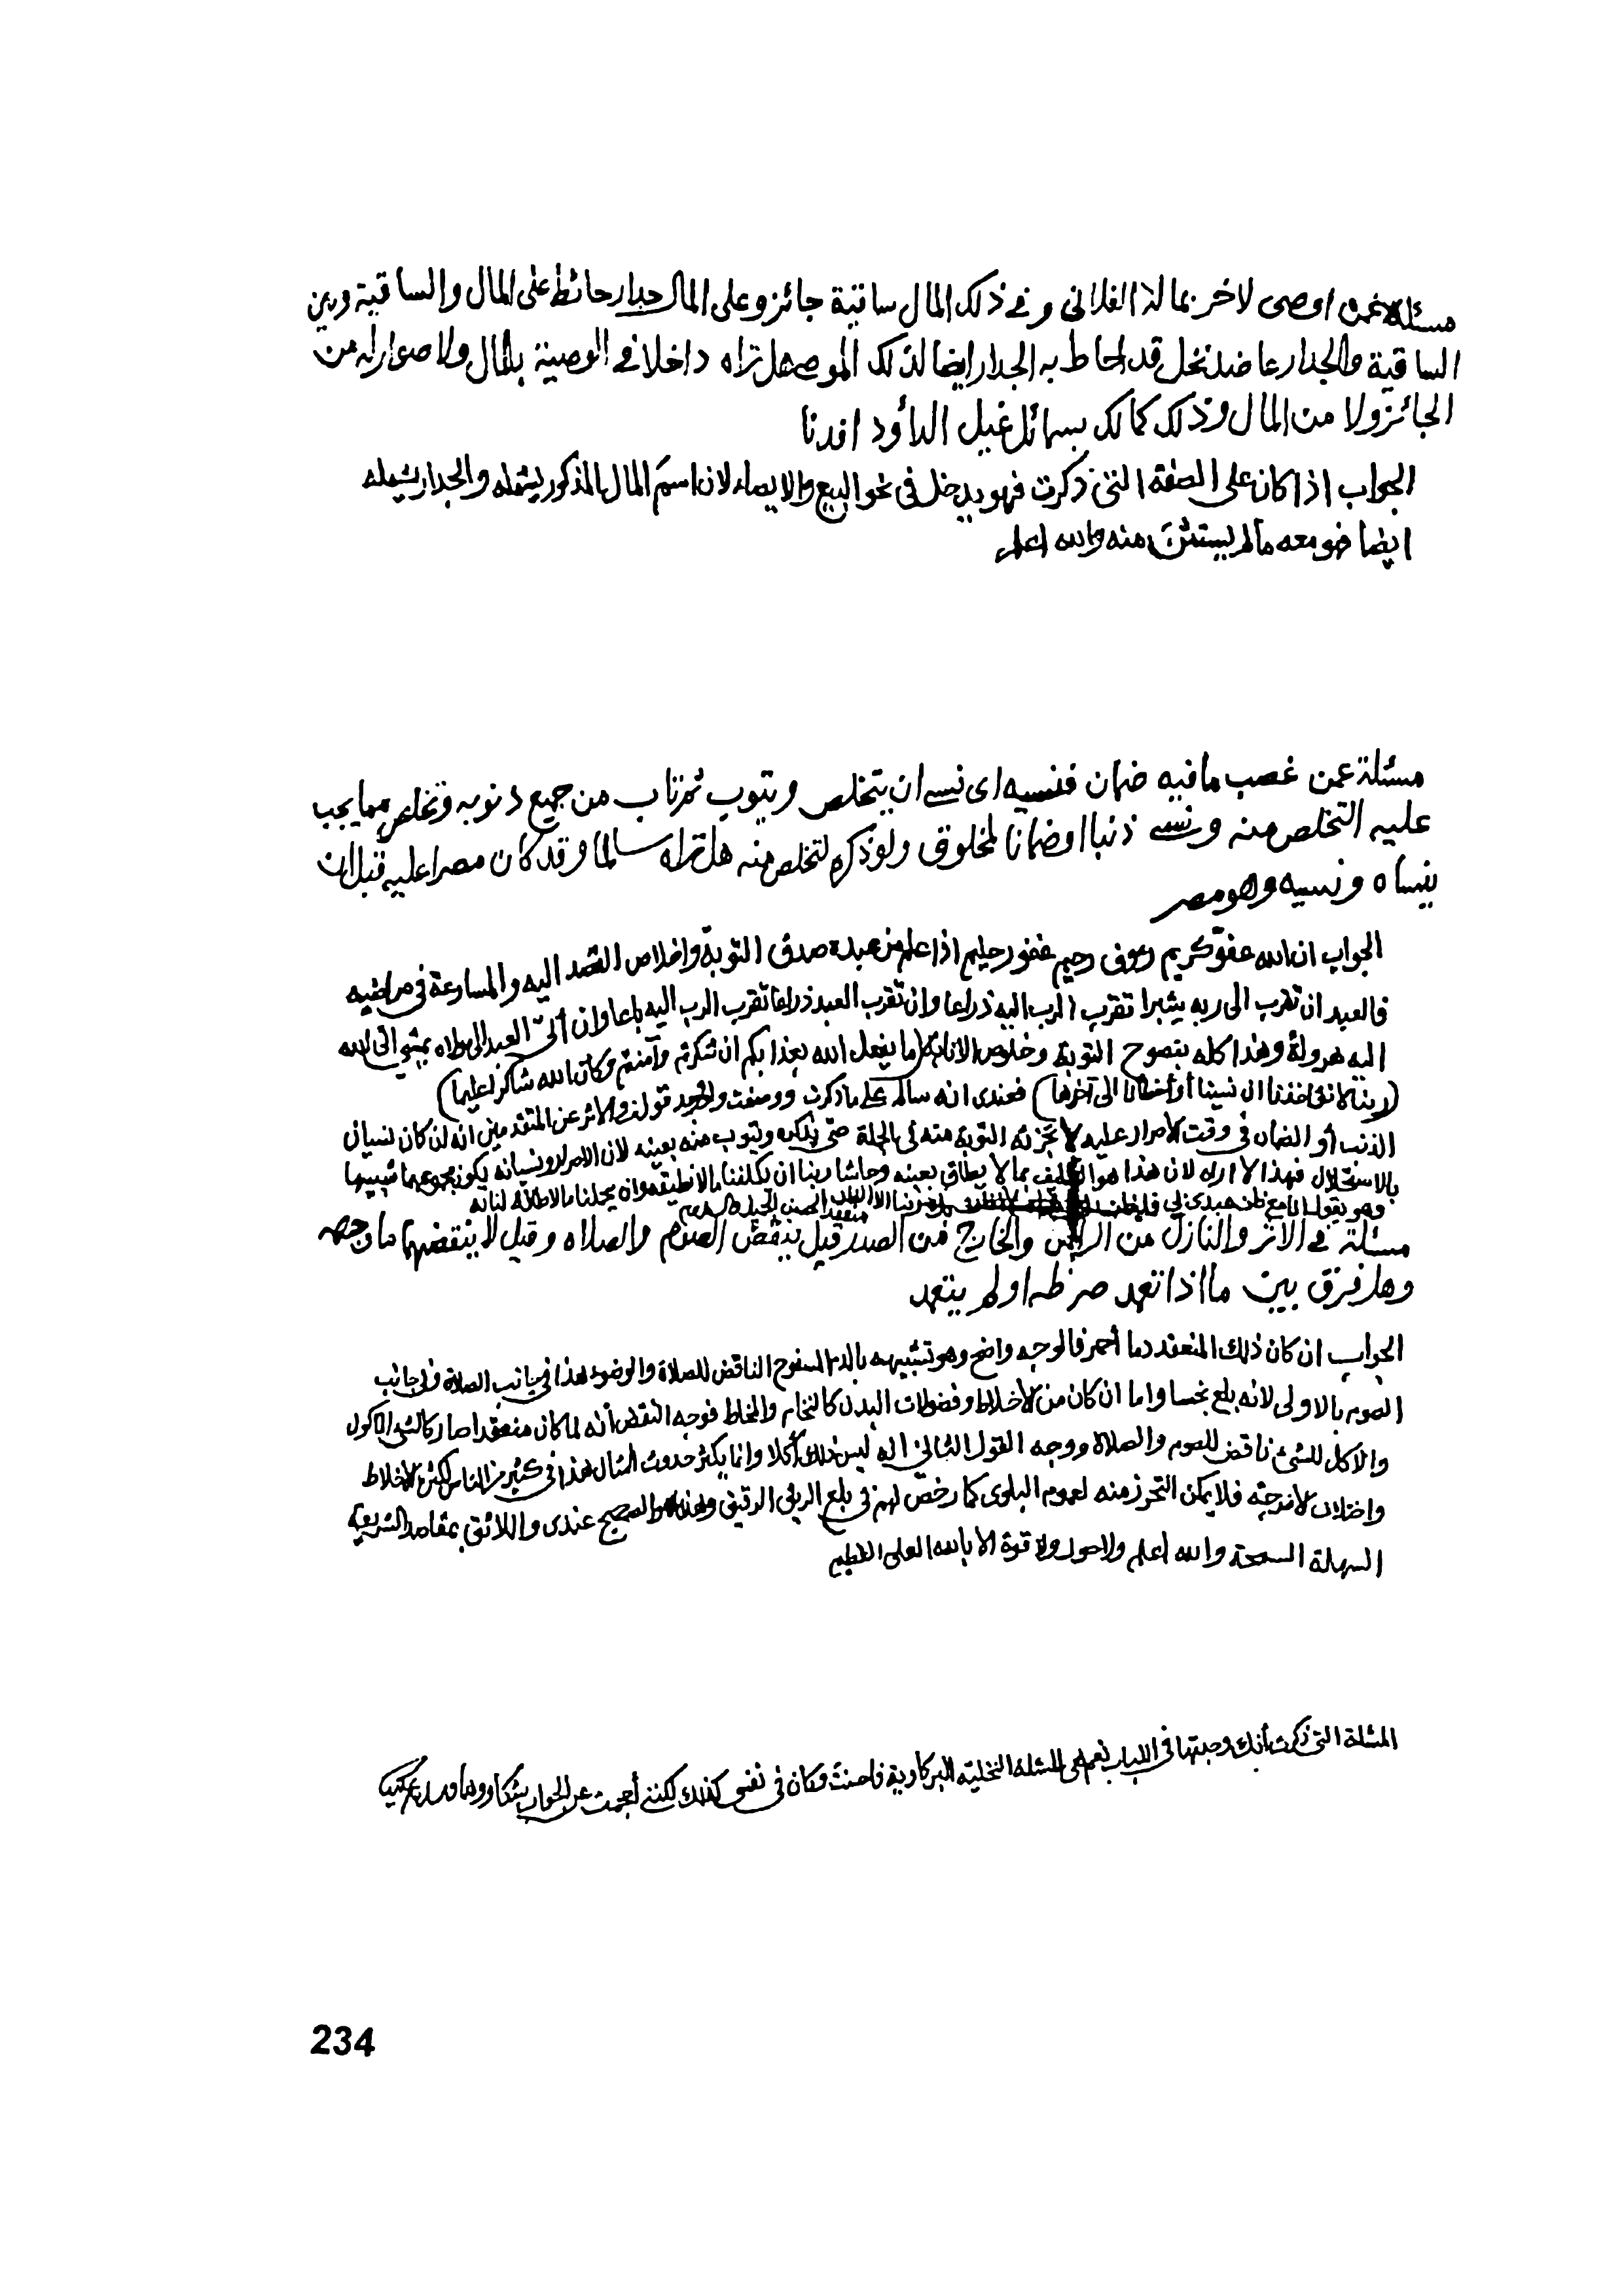 مسئلة عمن اوصى لاخر بماله الفلاني وفي ذلك المال ساقية جائز وعلى المال جدار حائط على المال والساقية وبين
الساقية والجدار عاضد نخل قد احاط به الجدار ايضا لذلك الموصي هل تراه داخلا في الوصية بالمال ولا صوار له من
الجائز ولا من المال وذلك كمالك بسمائل غيل الداؤد افدنا
الجواب اذا كان على الصفة التي ذكرت فهو يدخل في نحو البيع والايصاء لان اسم المال المذكور يشمله والجدار يشمله
ايضا فهو معه مالم يستثن منه والله اعلم
مسئلة عمن غصب ما فيه ضمان فنسيه اى نسي ان يتخلص ويتوب ثم تاب من جميع ذنوبه وتخلص مما يجب
عليه التخلص منه ونسي ذنبا او ضمانا لمخلوق ولو ذكره لتخلص منه هل تراه سالما وقد كان مصرا عليه قبل ان
ينساه ونسيه وهو مصر
الجواب ان الله عفو كريم رءوف رحيم غفور حليم اذا علم من عبده صدق التوبة واخلاص القصد اليه والمسارعة في مراضيه
فالعبد ان تقرب الى ربه شبرا تقرب الرب اليه ذراعا وان تقرب العبد ذراعا تقرب الرب اليه باعا وان أتى العبد الى مولاه يمشي اتى الله
اليه هرولة وهذا كله بنصوح التوبة وخلوص الانابة (ما يفعل الله بعذابكم ان شكرتم وآمنتم وكان الله شاكرا عليما)
(ربنا لا تؤاخذنا ان نسينا أو أخطأنا الى آخرها) فعندى انه سالم على ما ذكرت ووصفت ولا يوجد قول في الاثر عن المتقدمين انه ان كان نسيان
الذنب أو الضمان في وقت الاصرار عليه لا تجزئه التوبة منه في الجملة حتى يذكره ويتوب منه بعينه لان الاصرار ونسيانه يكون مجموعهما شبيها
بالاستحلال فهذا لا اراه لان هذا هو التكليف بما لا يطاق بعينه وحاشا ربنا ان يكلفنا مالا نطيقه وان يحملنا مالا طاقة لنا به
وهو يقول انا مع ظن عبدى بي فليظن
مسئلة في الاثر والنازل من الراس والخارج من الصدر قيل ينقض الصوم والصلاه وقيل لا ينقضهما ما
وهل فرق بين ما اذا تعمد صرطه او لم يتعمد
الجواب ان كان ذلك المنعقد دما أحمر فالوجه واضح وهو تشبيهه بالدم المسفوح الناقض للصلاة والوضوء هذا في جانب الصلاة وفي جانب
الصوم بالاولى لانه بلع نجسا واما ان كان من الاخلاط وفضولات البدن كالنخام والمخاط فوجه النقض أنه لما كان منعقدا صار كالشئ المأكول
والاكل للشئ ناقض للصوم والصلاة ووجه القول الثاني انه ليس ذلك أكلا وانما يكثر حدوث امثال هذا في كثير من الناس لكثرة الاخلاط
واختلاف الامزجة فلا يمكن التحرز منه لعموم البلوى كما رخص لهم في بلع الريق الرقيق وهذا هو الصحيح عندى واللائق بمقاصد الشريعة
السهلة السمحة والله اعلم ولاحول ولا قوة الا بالله العلى العظيم
المسئلة التى ذكرت أنك وجدتها في اللباب نعم هى المسئلة النخلية البركاوية فاحسنت وكان في نفسى كذلك لكننى أحجمت عن الجواب
234